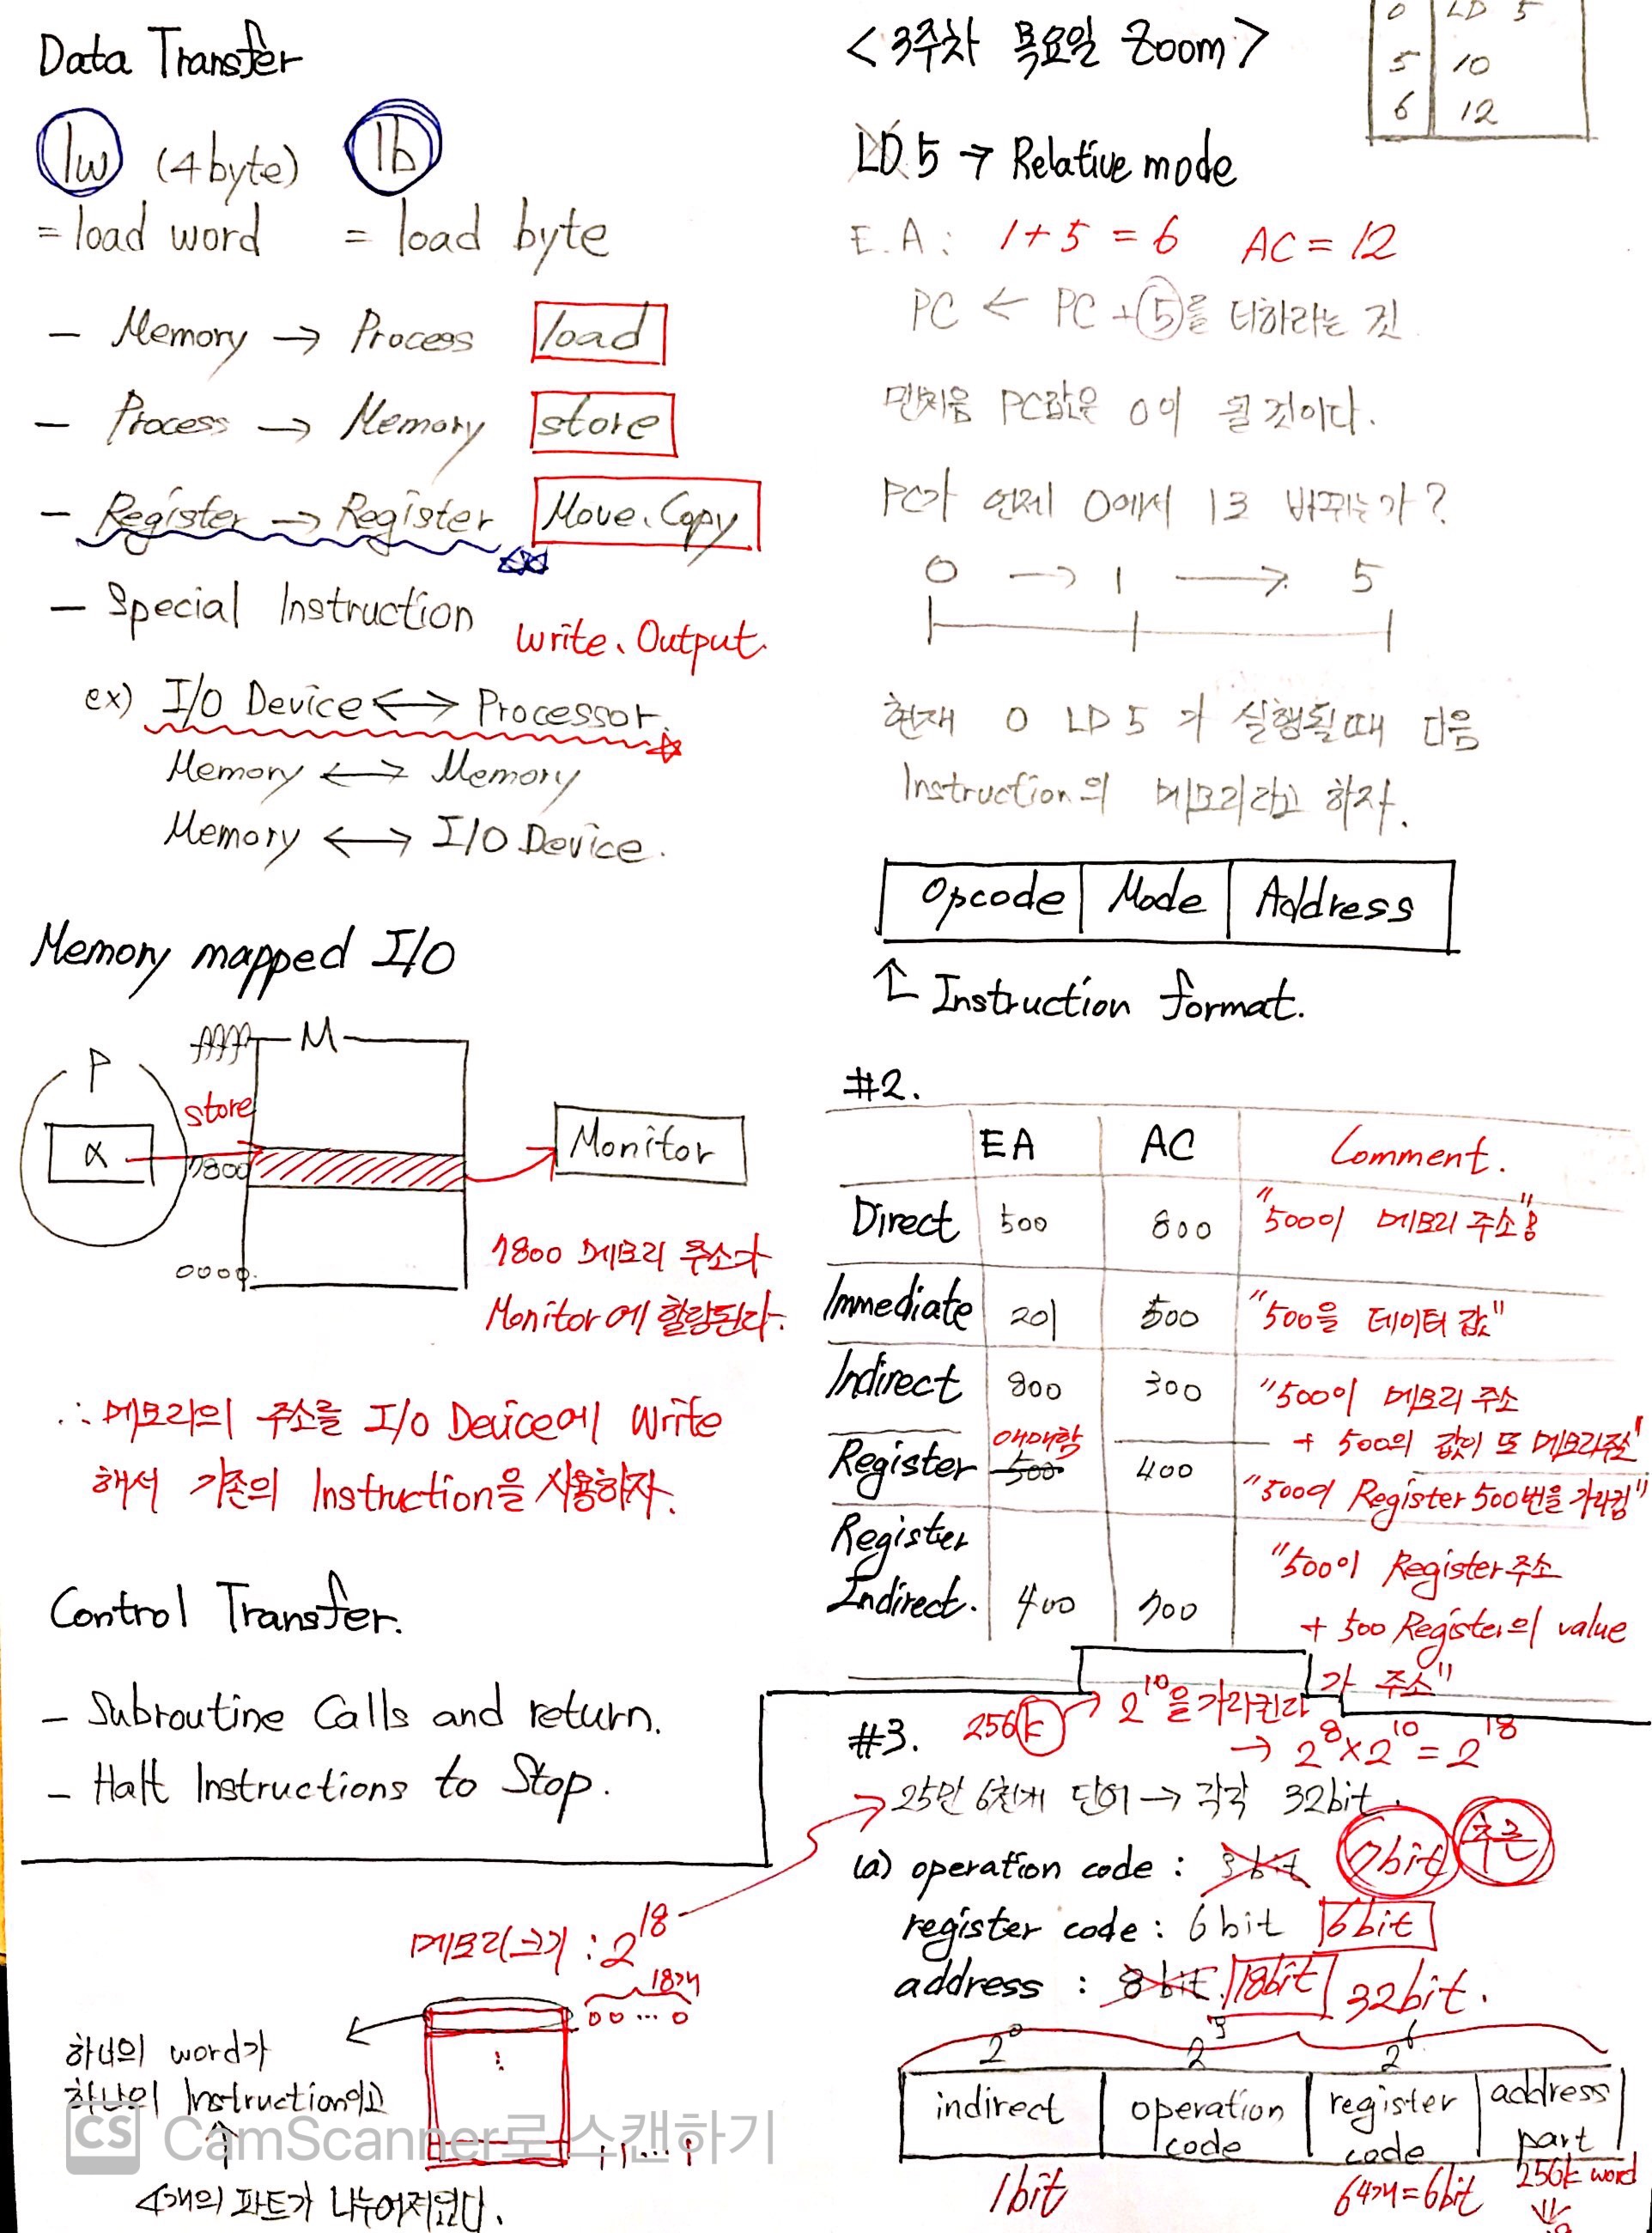 Data Transfer
lw (4byte) lb
= load word = load byte
- Memory → Process load
- Process → Memory store
- Register → Register Move、Copy
- Special Instruction
write、Output.
ex) I/O Device ↔ Processor.
Memory ↔ Memory
Memory ↔ I/O Device.
Memory mapped I/O
M
P
store
α
7800
Monitor
0000.
7800 메모리 주소가
Monitor에 할당된다.
∴ 메모리의 주소를 I/O Device에 Write
해서 기존의 Instruction을 사용하자.
Control Transfer.
- Subroutine Calls and return.
- Halt Instructions to Stop.
메모리크기 : 2^18
18개
00...0
하나의 word가
하나의 Instruction이고
11...1
4개의 파트가 나누어져있다.
CS CamScanner로 스캔하기
<3주차 목요일 Zoom>
0 LD 5
5 10
6 12
LD 5 → Relative mode
E.A: 1+5=6 AC=12
PC ← PC + 5를 더하라는 것
맨처음 PC값은 0이 될 것이다.
PC가 언제 0에서 1로 바뀌는가?
0 → 1 → 5
현재 0 LD 5 가 실행될때 다음
Instruction의 메모리라고 하자.
Opcode Mode Address
Instruction format.
#2.
EA AC Comment.
Direct 500 800 "500이 메모리 주소"
Immediate 201 500 "500을 데이터 값"
Indirect 800 300 "500이 메모리 주소
+ 500의 값이 또 메모리주소"
애매함
Register 500 400 "500이 Register 500번을 가리킴"
Register
Indirect. 400 700 "500이 Register주소
+ 500 Register의 value
가 주소"
256k → 2^10을 가리킨다
#3.
→ 2^8×2^10=2^18
25만 6천개 단어 → 각각 32bit.
(a) operation code : 7bit
register code : 6bit 6bit
address : 8bit 18bit 32bit.
indirect operation code register code address part
1bit 64개=6bit 256k word